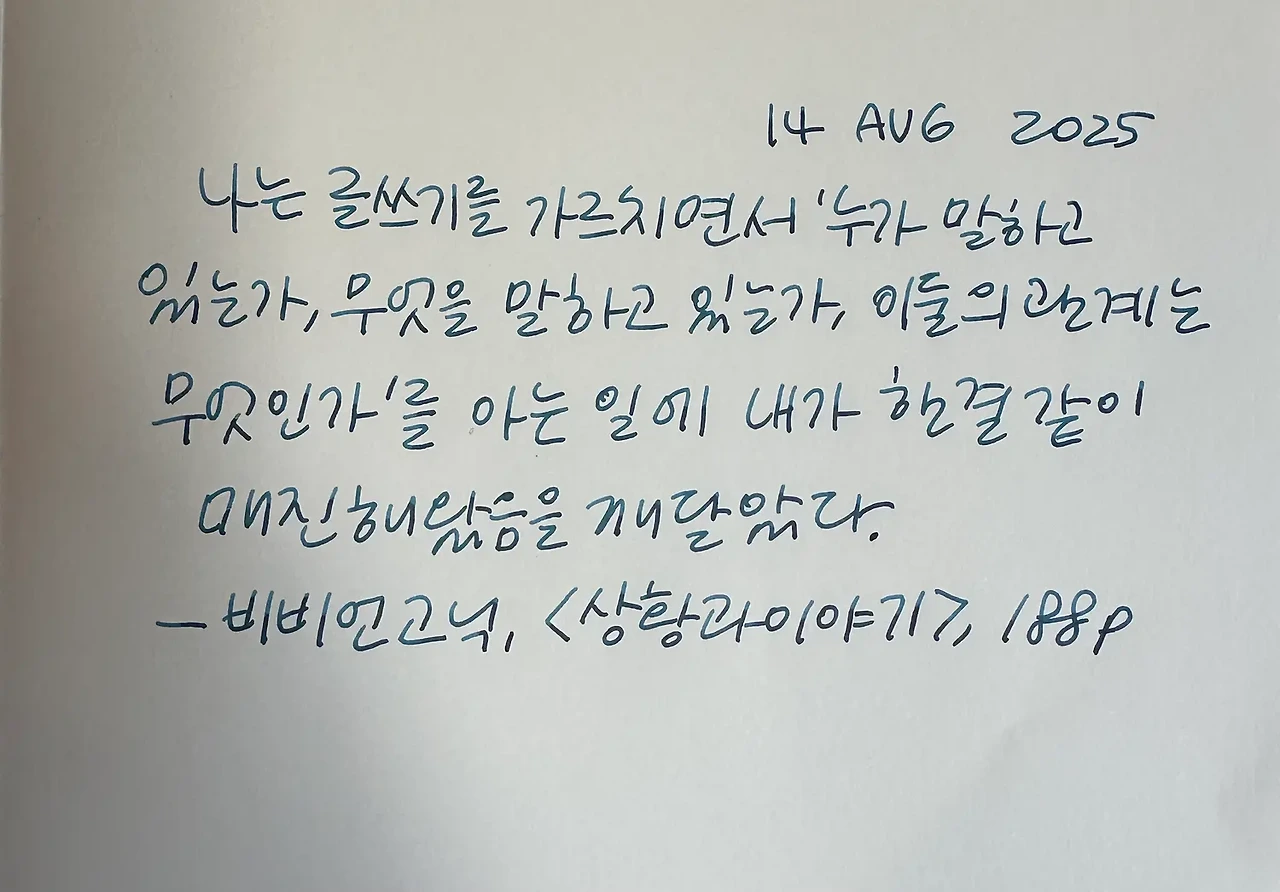 14 AUG 2025
나는 글쓰기를 가르치면서 '누가 말하고
있는가, 무엇을 말하고 있는가, 이들의 관계는
무엇인가'를 아는 일에 내가 한결같이
매진해왔음을 깨달았다.
- 비비언 고닉, <상황과 이야기>, 188p